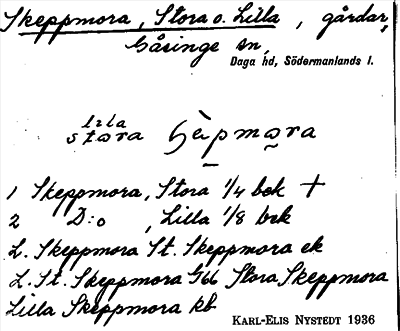 Skeppmora, Stora o. Lilla, gårdar,
Gåsinge sn,
Daga hd, Södermanlands l.
lıla
stora
1 Skeppmora, Stora 1/4 bek +
2 D:o , Lilla 1/8 bek
L. Skeppmora St. Skeppmora ek
L. St. Skeppmora G66 Stora Skeppmora
Lilla Skeppmora kb
KARL-ELIS NYSTEDT 1936